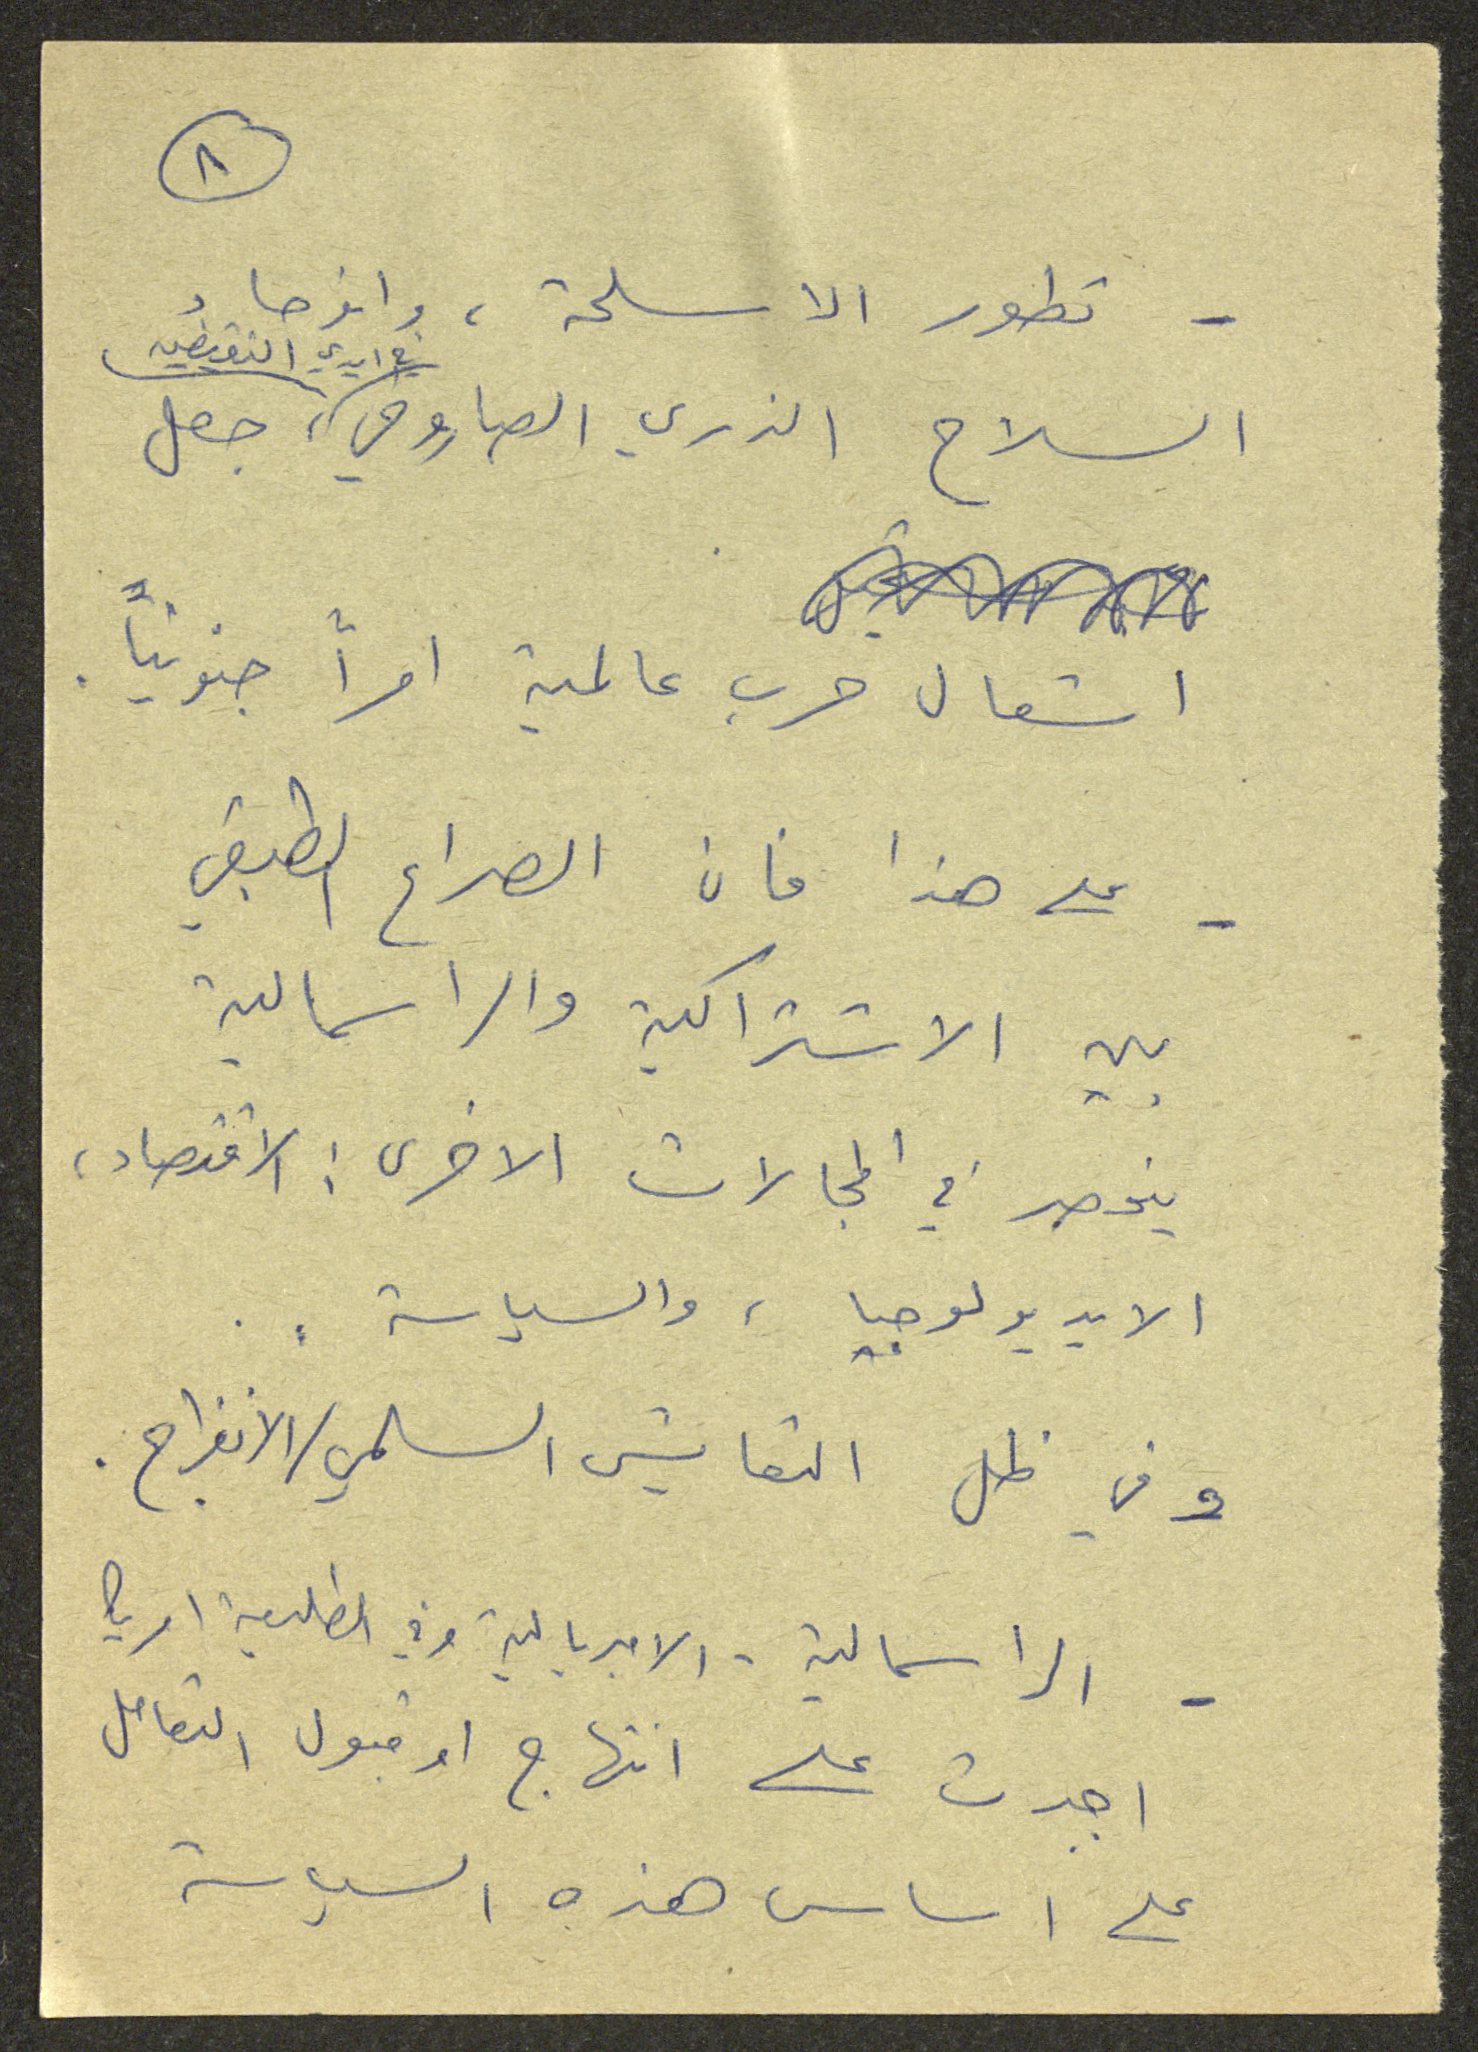 ٨
- تطور الاسلحة ، وانوجاد
في ايدي النقيضين
السلاح الذري الصاروخي ، جعل
اشعال حرب عالمية امراً جنونياً .
- على هذا فان الصراع الطبقي
بين الاشتراكية والراسمالية
ينحصر في المجالات الاخرى : الاقتصاد ،
الايديولوجيا ، والسياسة . .
وفي ظل التعايش السلمي/الانفراج .
- الراسمالية - الامبريالية وفي الطليعة امريكا
اجبرت على انتهاج او قبول التعامل
على اساس هذه السياسة